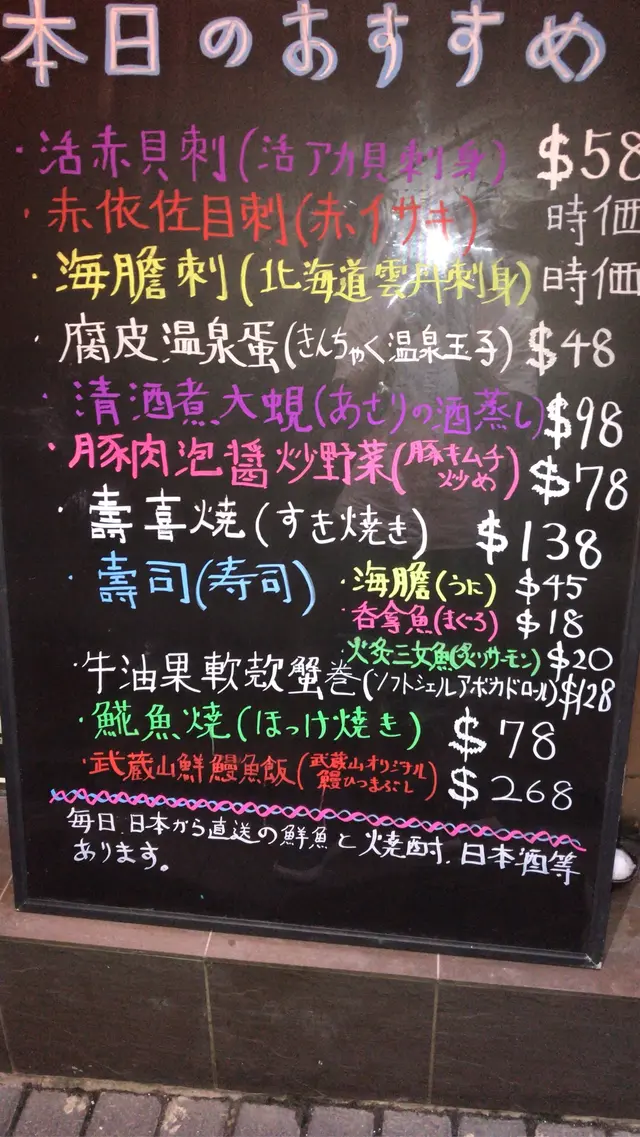 本日のおすすめ
・活赤貝刺(活アカ貝刺身) $58
・赤依佐目刺(赤イサキ) 時価
・海膽刺(北海道雲丹刺身) 時価
・腐皮温泉蛋(きんちゃく温泉玉子) $48
・清酒煮大蜆(あさりの酒蒸し) $98
・豚肉泡醬炒野菜(豚キムチ炒め) $78
・壽喜焼(すき焼き) $138
・壽司(寿司) ・海膽(うに) $45
・呑拿魚(まぐろ) $18
・火炙三文魚(炙りサーモン) $20
・牛油果軟殼蟹巻(ソフトシェルアボカドロール) $128
・𩸽魚焼(ほっけ焼き) $78
・武蔵山鮮鰻魚飯(武蔵山オリジナル鰻ひつまぶし) $268
毎日.日本から直送の鮮魚と焼酎.日本酒等
あります。